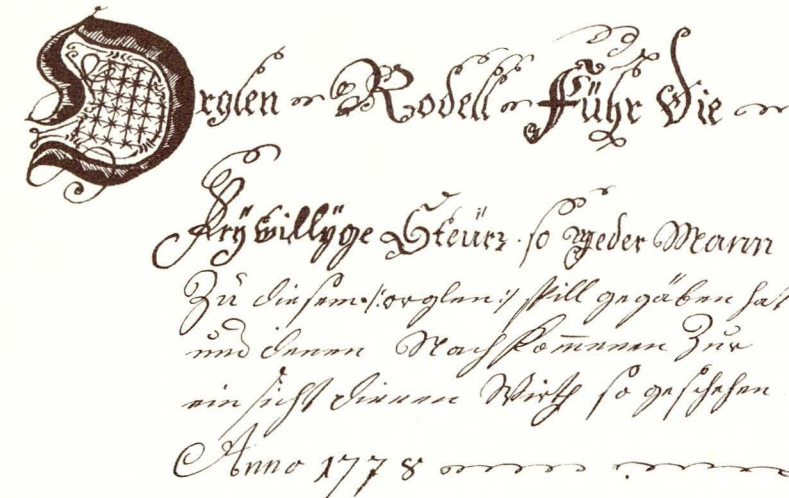 Orglen Rodell Führ Die
Frÿwillÿge Steürr so Yeder Mann
Zu diesem /:orglen:/ spill gegäben hat
und denen Nachkom̅enen Zur
einsicht dienen Wirth so geschehen
Anno 1778